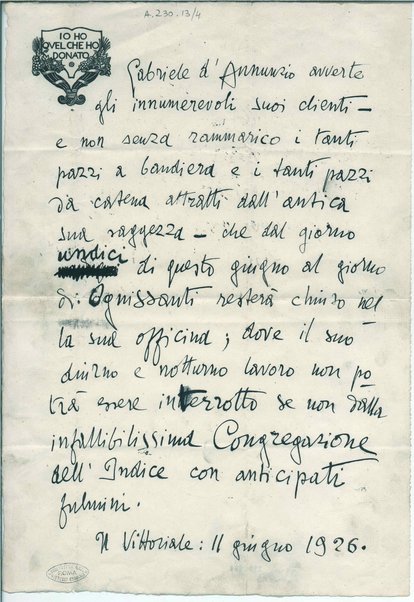 A.230.13/4
IO HO
QVEL CHE HO
DONATO
Gabriele d'Annunzio avverte
gli innumerevoli suoi clienti –
e non senza rammarico i tanti
pazzi a bandiera e i tanti pazzi
da catena attratti dall'antica
sua saggezza – che dal giorno
undici di questo giugno al giorno
di Ognissanti resterà chiuso nel
la sua officina; dove il suo
diurno e notturno lavoro non po
trà essere interrotto se non dalla
infallibilissima Congregazione
dell'Indice con anticipati
fulmini.
Il Vittoriale: 11 giugno 1926.
ROMA